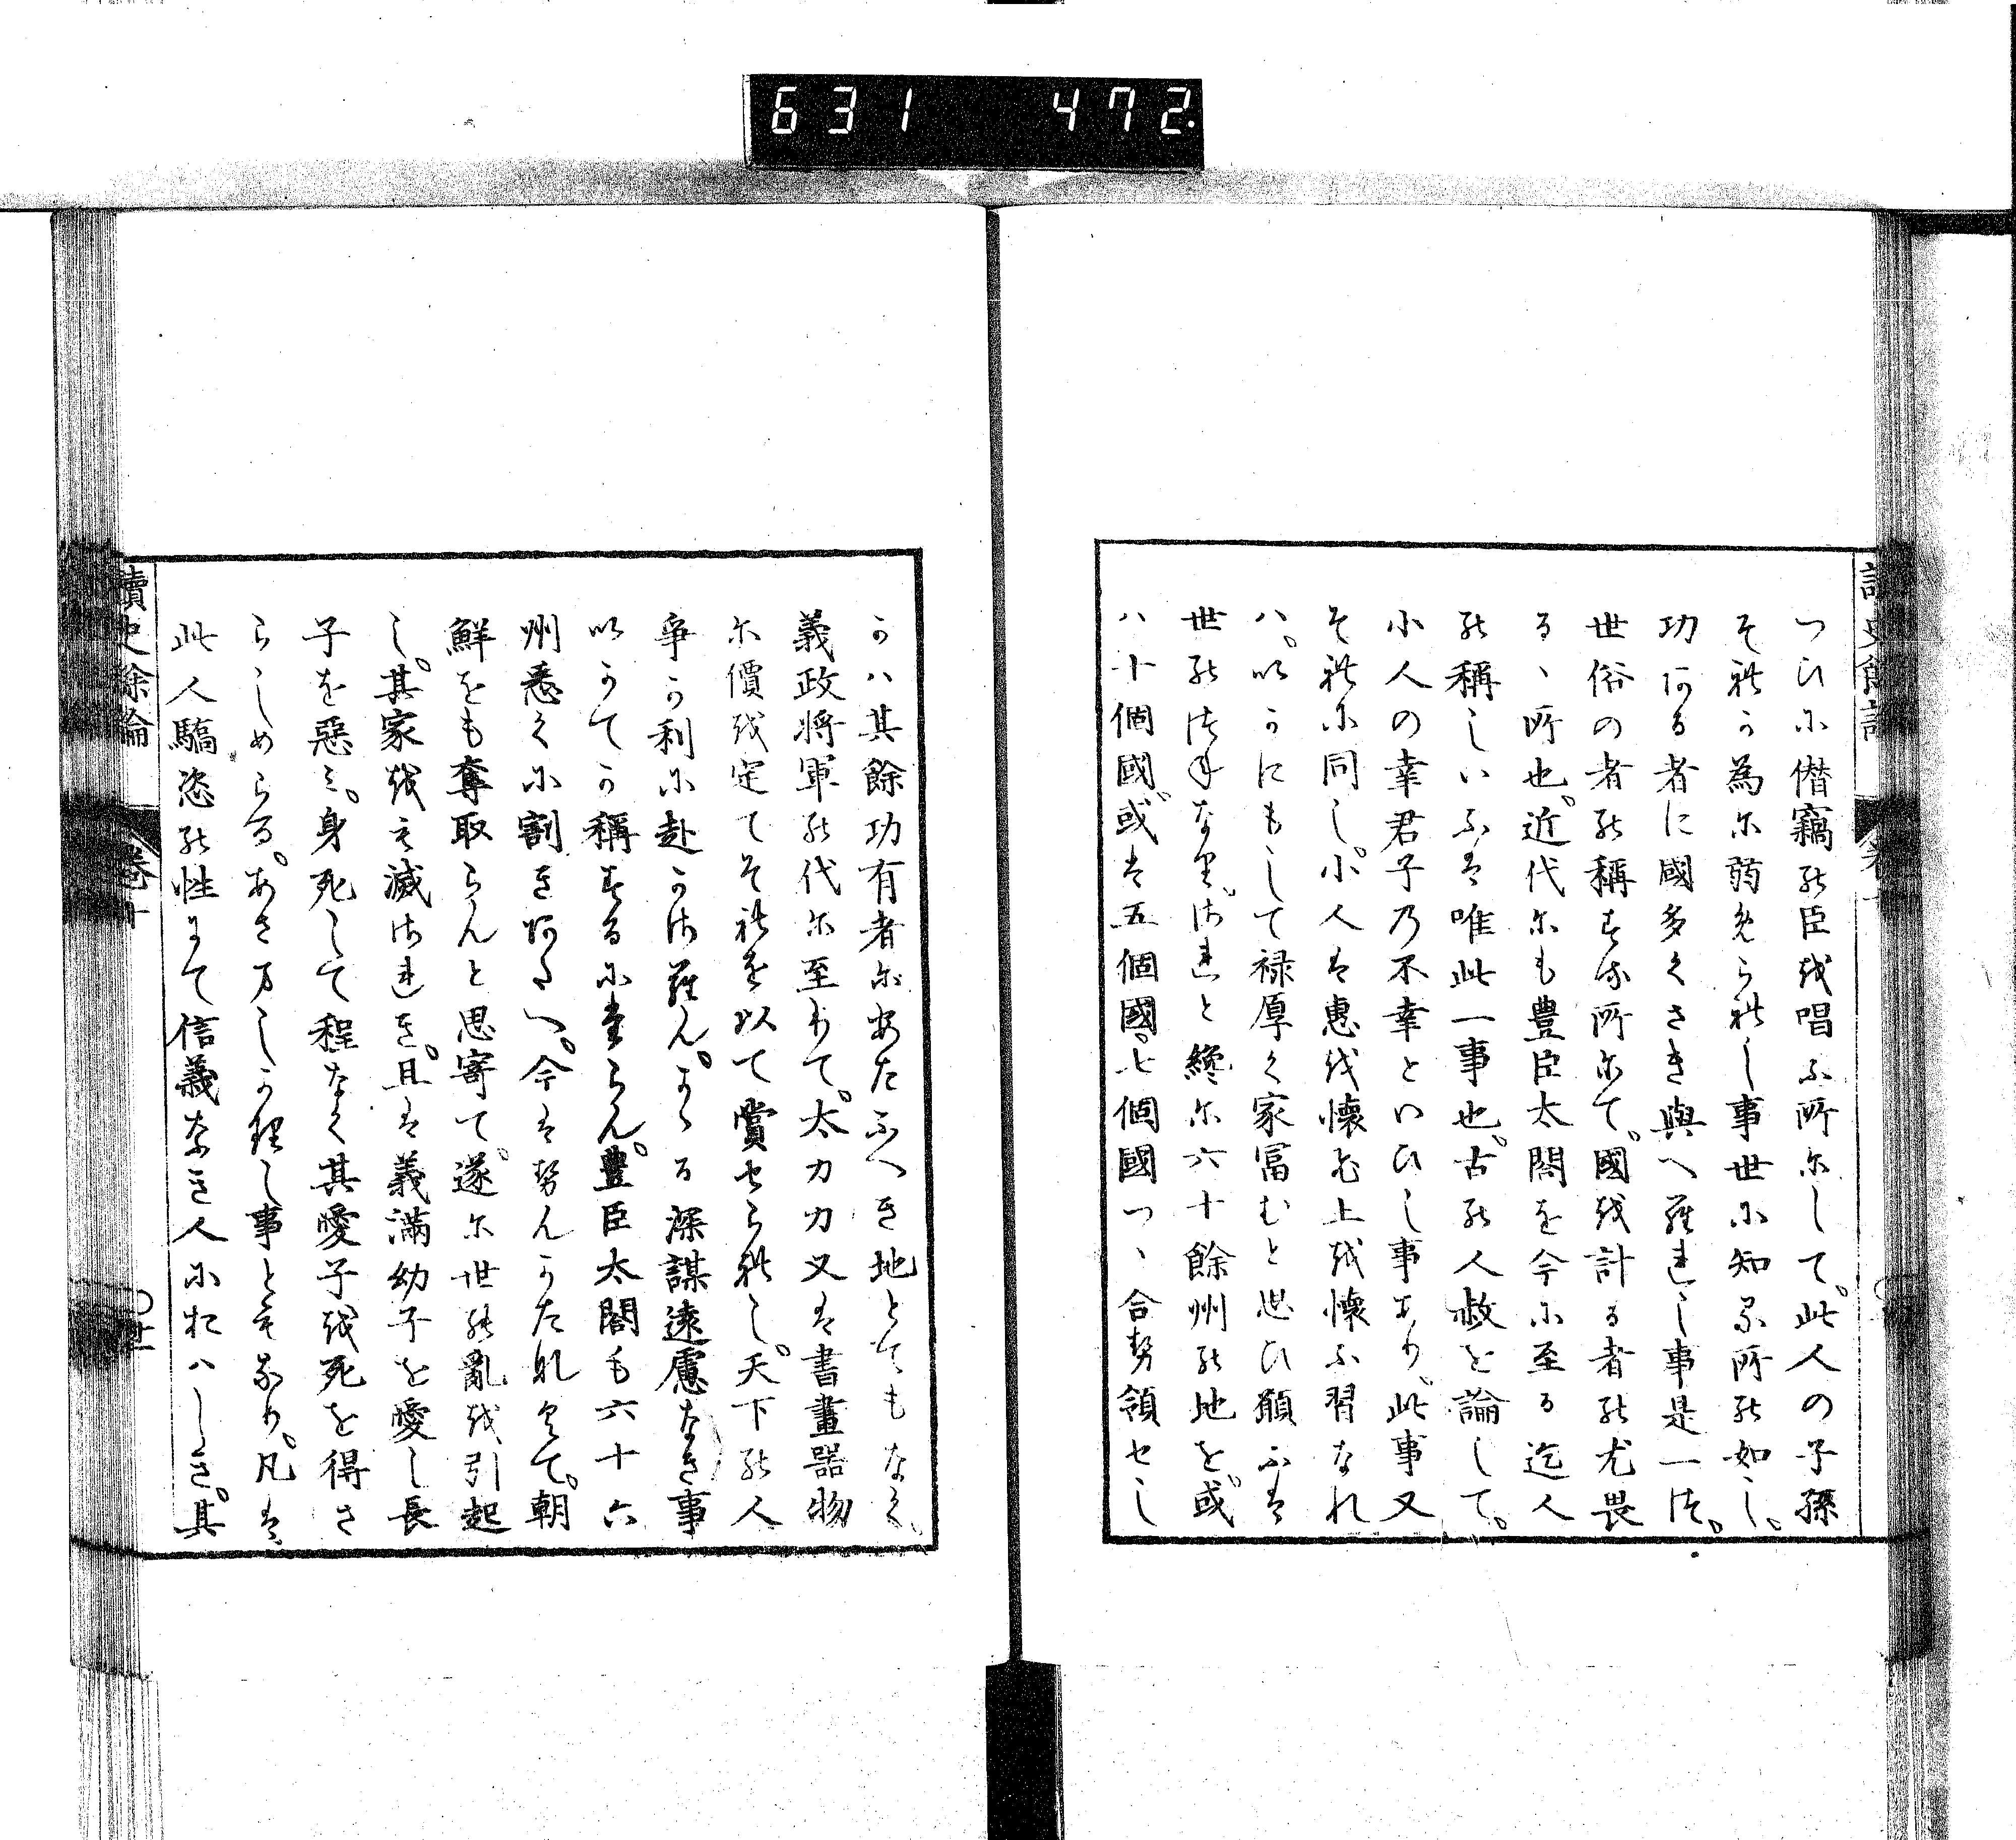 631 472.
つひに僣竊の臣を唱ふ所にして。此人の子孫
それか為に弱められし事世に知る所の如し。
功ある者に國多くさき與へられし事是一つ。
世俗の者の稱する所にて。國を計る者の尤畏
るゝ所也。近代にも豊臣太閤を今に至る迄人
の稱しいふは唯此一事也。古の人赦を論して。
小人の幸君子乃不幸といひし事あり。此事又
それに同し。小人は惠を懷ひ上を懷ふ習なれ
ハ。いかにもして禄厚く家冨むと思ひ願ふは
世のつねなり。されと纔に六十餘州の地を。或
ハ十個國。或は五個國。七個國つゝ合勢領せし
かハ其餘功有者にあたふへき地とてもなく。
義政将軍の代に至りて。太刀刀又は書畫器物
に價を定てそれを以て賞せられし。天下の人
争か利に赴かさらん。かゝる深謀遠慮なき事
いかてか稱するに堂らん。豊臣太閤も六十六
州悉くに割きあたへ。今は勢んかたなくて。朝
鮮をも奪取らんと思寄て。遂に世の亂を引起
し。其家をも滅されき。且は義滿幼子を愛し長
子を惡み。身死して程なく其愛子を死を得さ
らしめらる。あさましかりし事ともなり。凡は
此人驕恣の性にて信義なき人におハしき。其
讀史餘論 巻十 〇廿